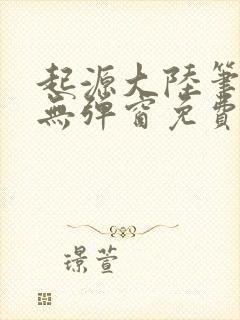 起源大陸筆
無彈窗免費
璟萱